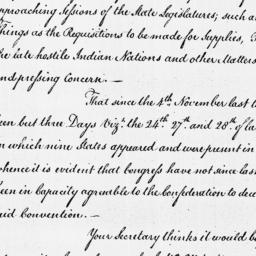 pproaching Sessions of the State Legislatures; such a
Things as the Requisitions to be made for Supplies,
the late hostile Indian Nations and other Matters
nd pressing Concern. —
That since the 4th. November last t
een but three Days Vizt. the 24th. 27th. and 28th. of la
n which nine States appeared and were present in
whence it is evident that Congress have not since las
een in capacity agreable to the Confederation to dec
aid Convention. —
Your Secretary thinks it would b